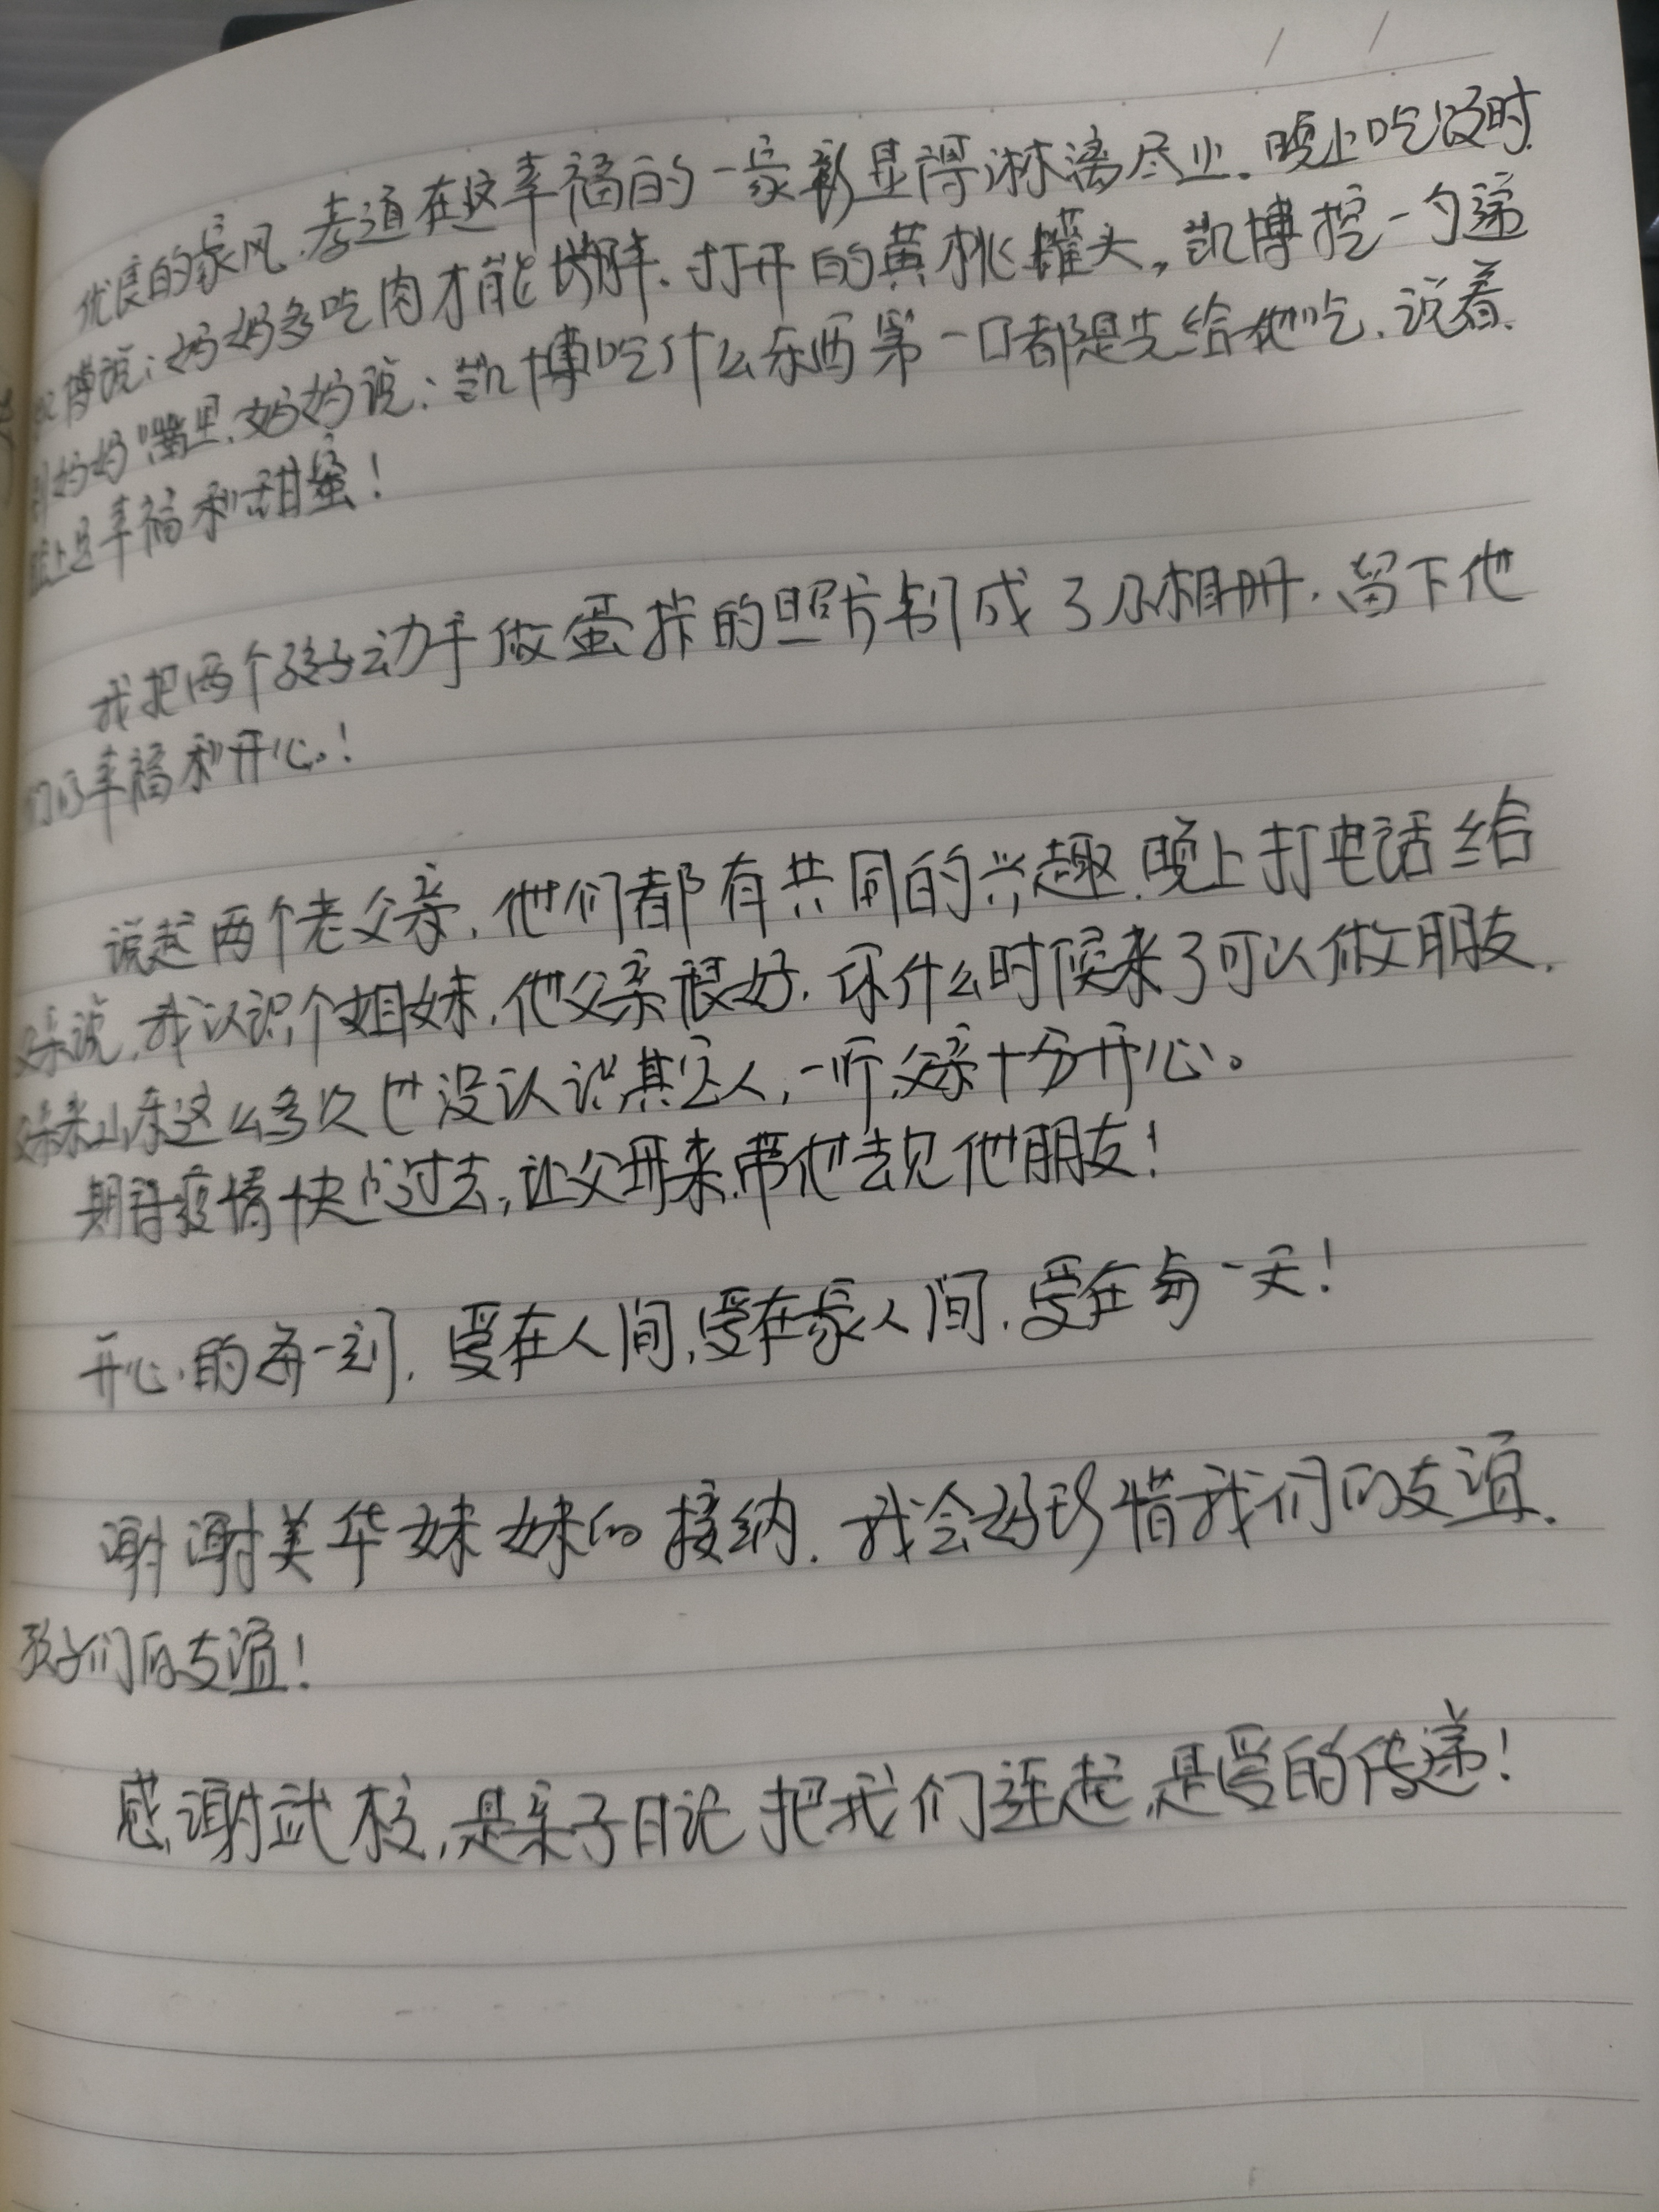 优良的家风,孝道在这幸福的一家彰显得淋漓尽止.晚上吃饭时.
凯博说:妈妈多吃肉才能长胖.打开的黄桃罐头,凯博挖一勺递
到妈妈嘴里.妈妈说:凯博吃什么东西第一口都是先给他吃.说着.
脸上是幸福和甜蜜!
我把两个孩子动手做蛋挞的照片制成了小相册.留下他
们的幸福和开心!
说起两个老父亲,他们都有共同的兴趣.晚上打电话给
父亲说,我认识个姐妹,他父亲很好.你什么时候来了可以做朋友.
父亲来山东这么多次也没认识其它人,一听,父亲十分开心。
期待疫情快点过去,让父母来.带他去见他朋友!
开心的每一刻,爱在人间,爱在家人间.爱在每一天!
谢谢美华妹妹的接纳.我会好珍惜我们的友谊.
孩子们的友谊!
感谢武校,是亲子日记把我们连起,是爱的传递!